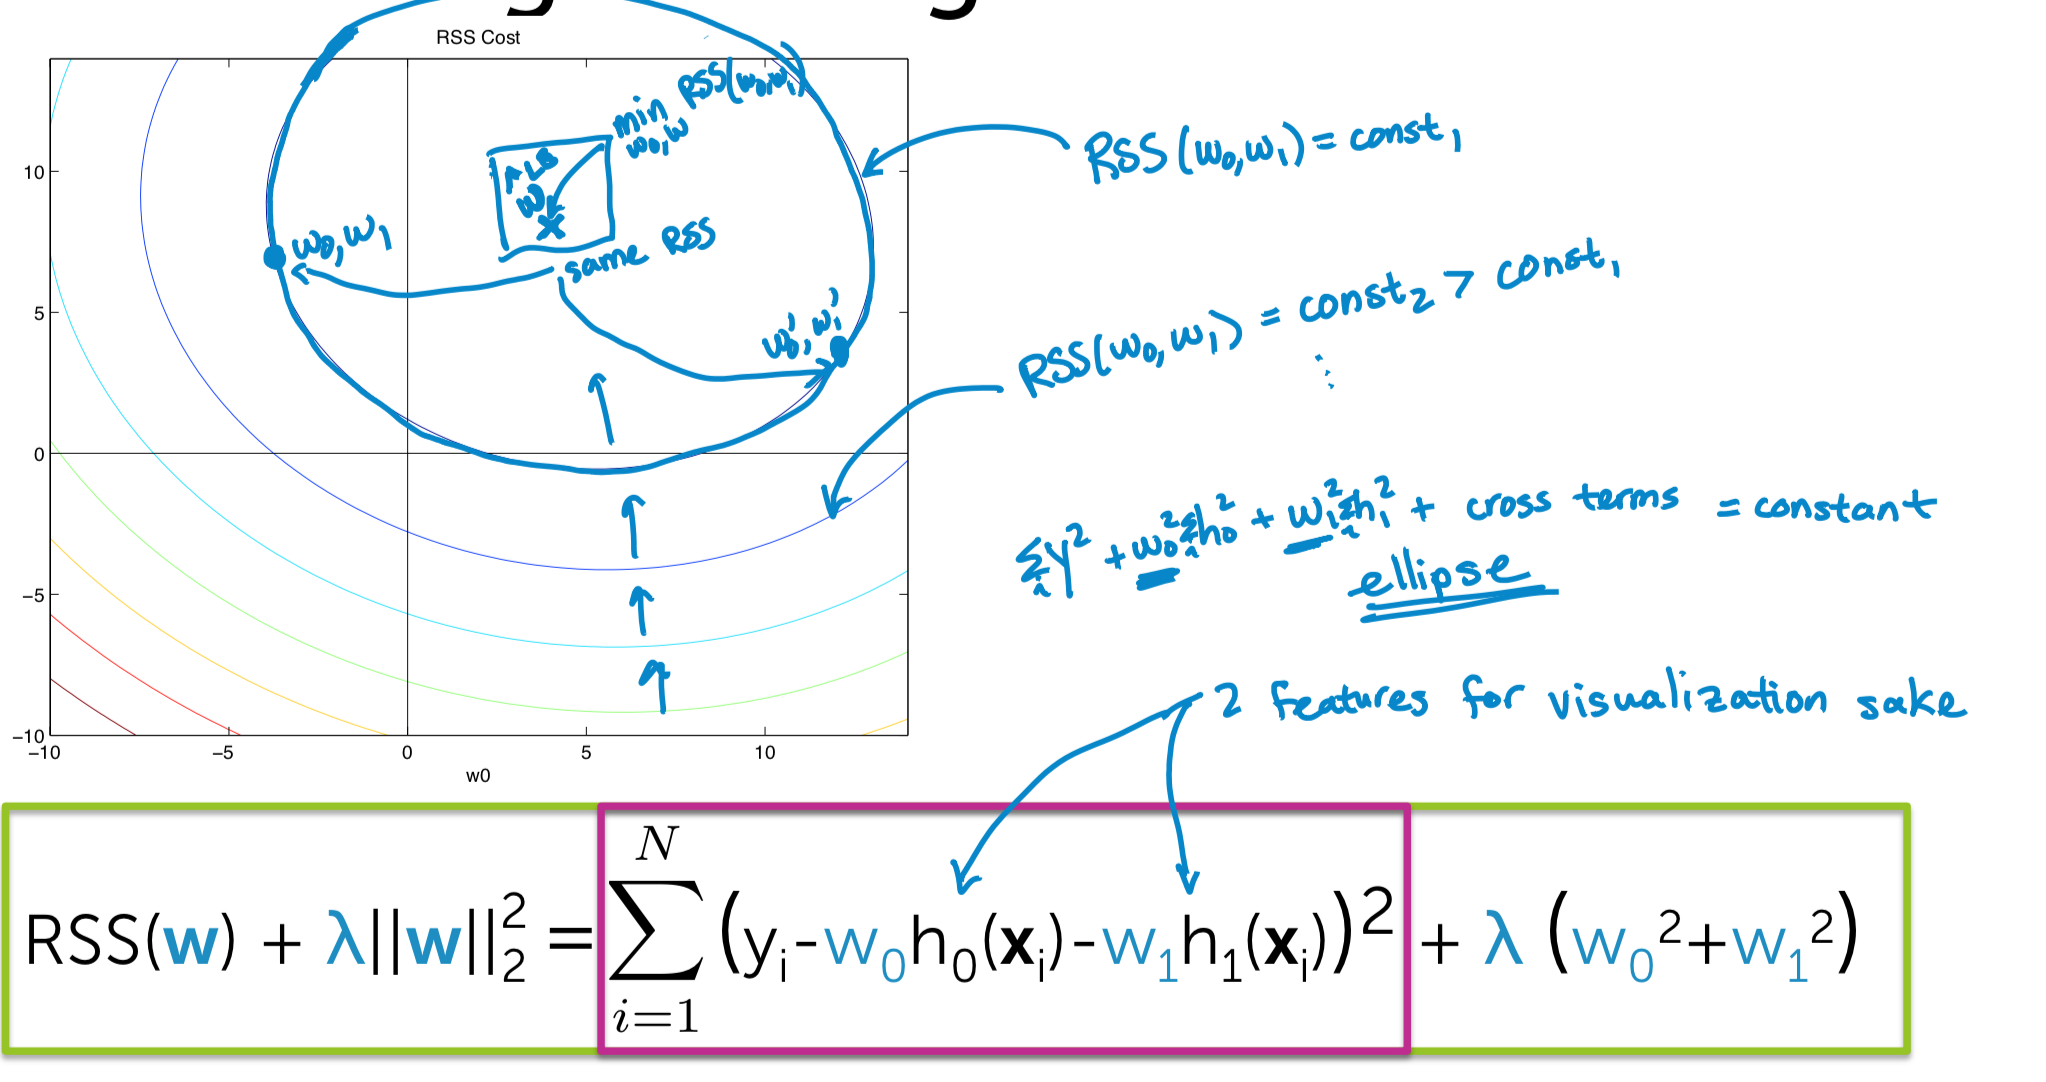 RSS Cost
min RSS(w₀,w₁)
w₀,w
ŵ LS
x
10
5
0
−5
−10
−10 −5 0 5 10
w0
w₀,w₁
same RSS
w₀', w₁'
RSS(w₀,w₁) = const₁
RSS(w₀,w₁) = const₂ > const₁
⋮
Σᵢ y² + w₀² Σᵢ h₀² + w₁² Σᵢ h₁² + cross terms = constant
ellipse
2 features for visualization sake
RSS(w) + λ||w||₂² = Σ_{i=1}^{N} (yᵢ-w₀h₀(xᵢ)-w₁h₁(xᵢ))² + λ (w₀²+w₁²)